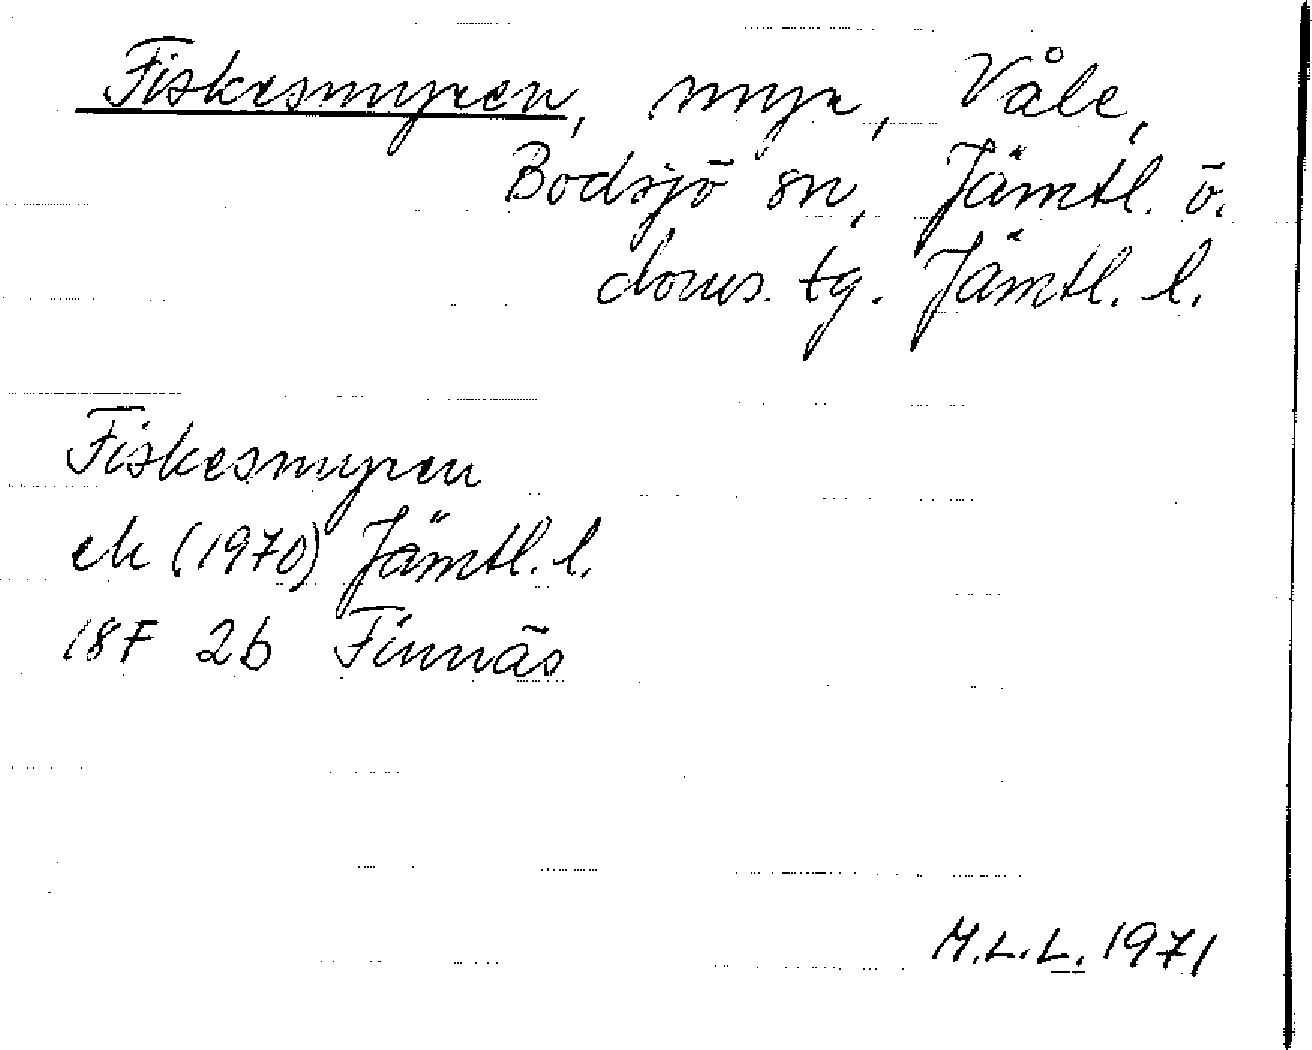 Fiskesmyren, myr, Våle,
Bodsjö sn, Jämtl. ö.
doms. tg. Jämtl. l.
Fiskesmyren
ek (1970) Jämtl. l.
18F 2b Finnäs
M.L.L. 1971